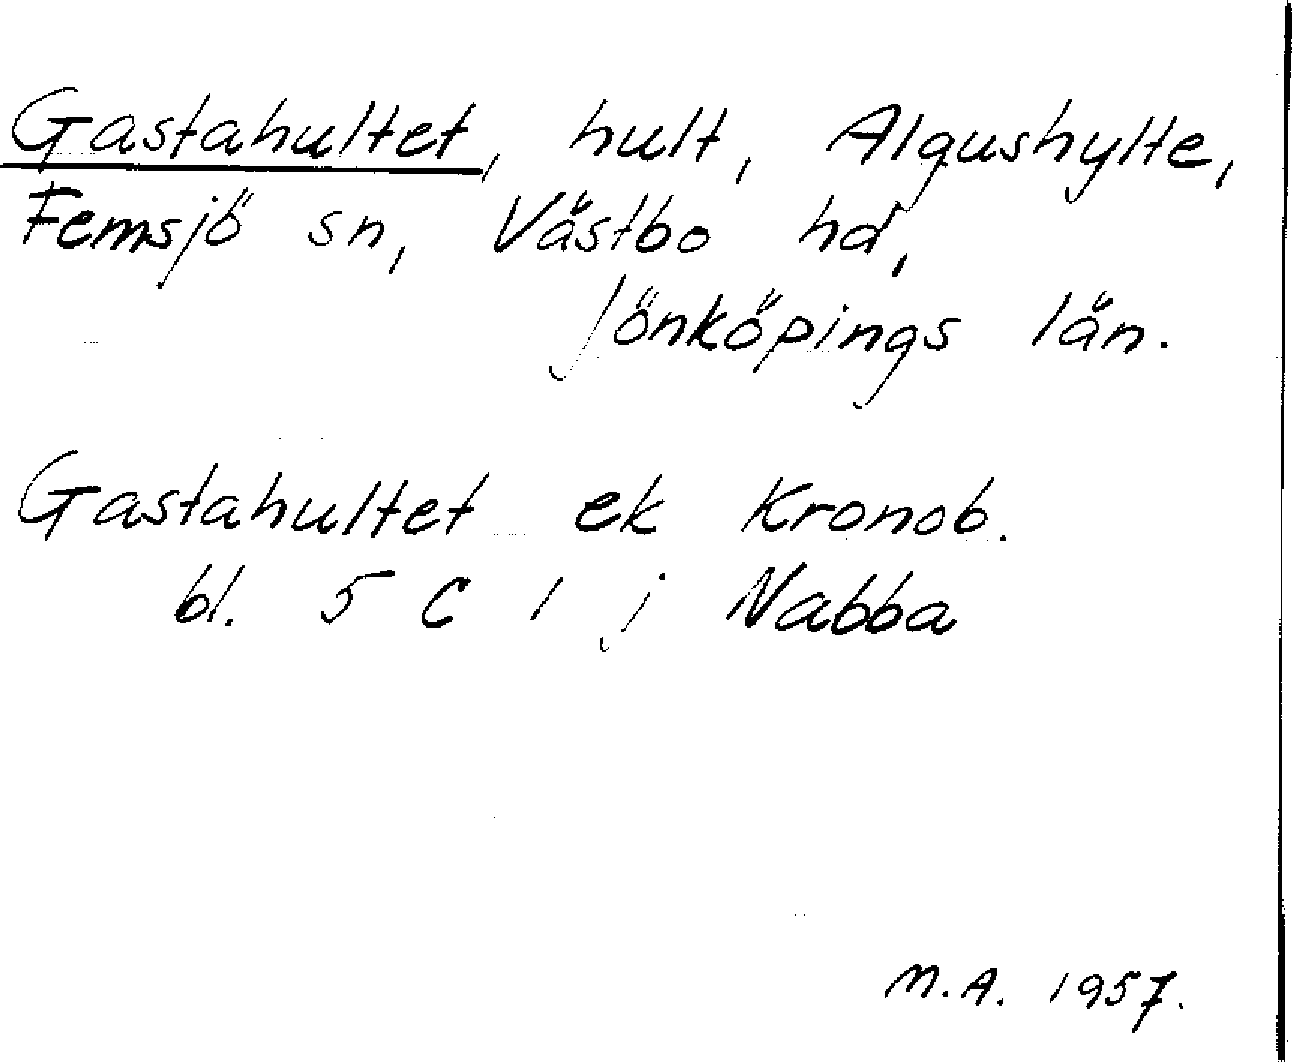 Gastahultet, hult, Algushylte,
Femsjö sn, Västbo hd,
Jönköpings län.
Gastahultet ek Kronob.
bl. 5 C 1 j Nabba
M.A. 1957.